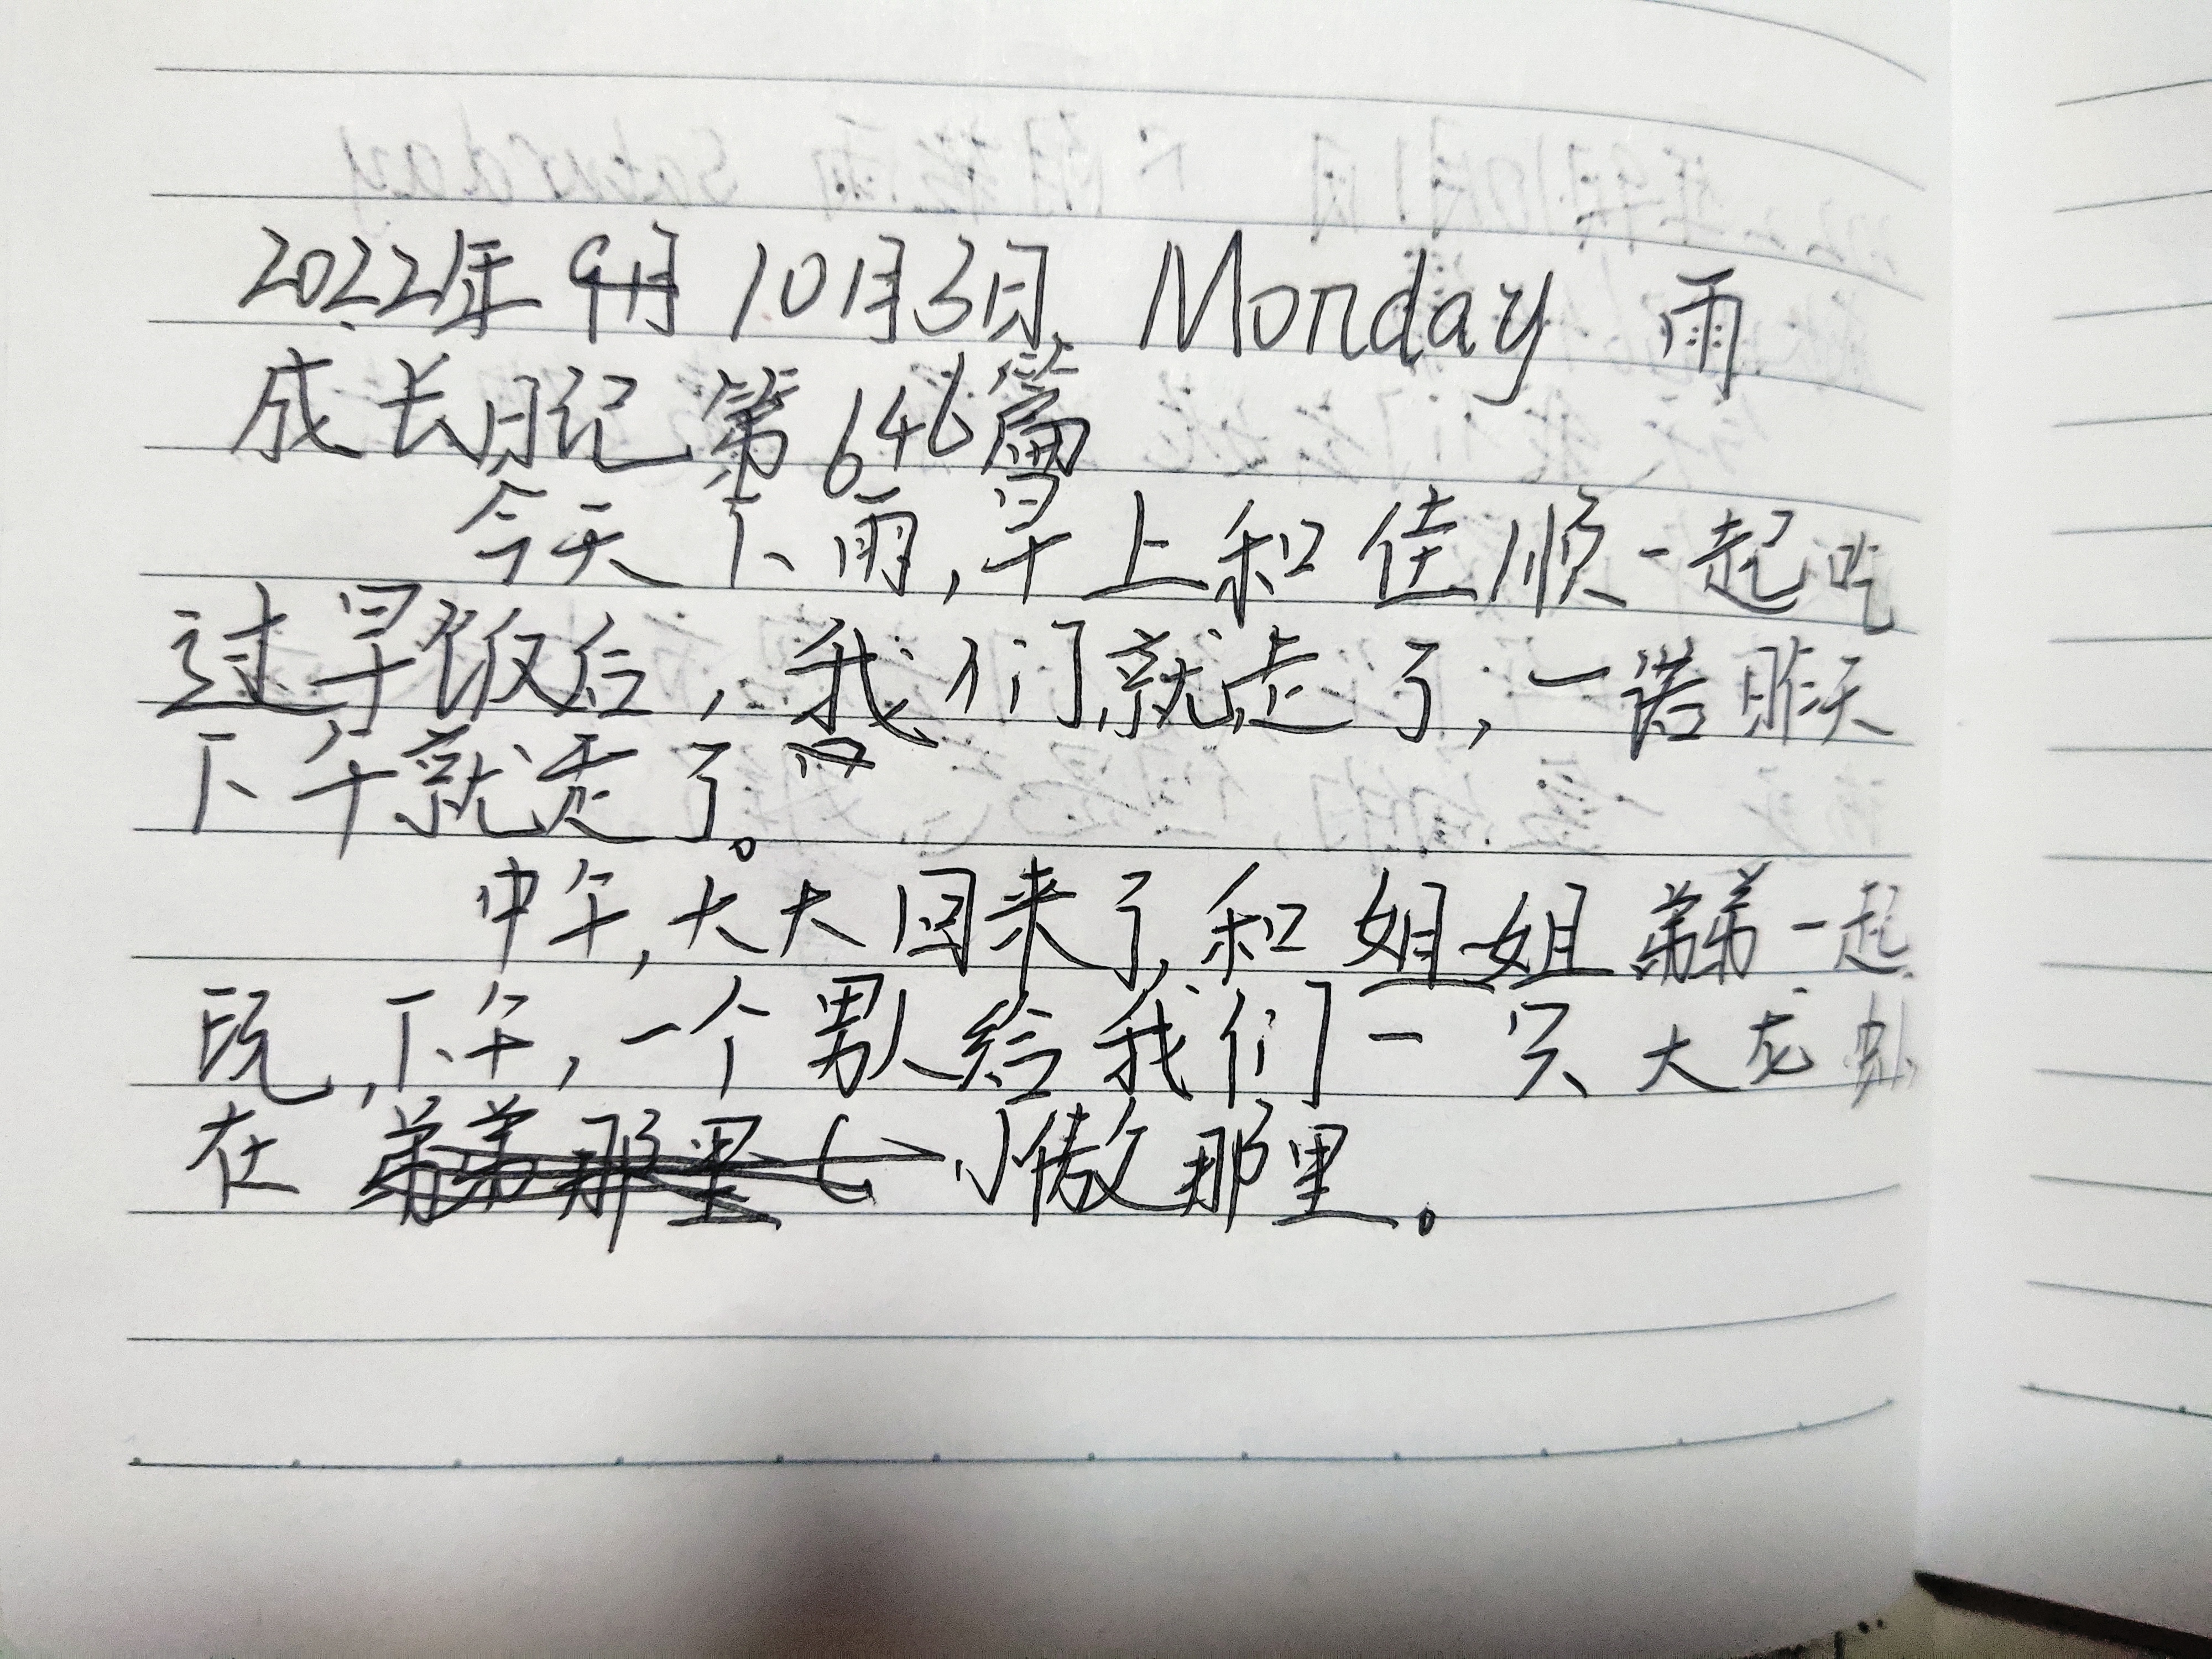 2022年9月10月3日 Monday 雨
成长日记第646篇
今天下雨,早上和佳顺一起吃
过早饭后,我们就走了,一诺昨天
下午就走了。
中午,大大回来了,和姐姐弟弟一起
玩,下午,一个男人给我们一只大龙虾,
在弟弟那里 小傲那里。